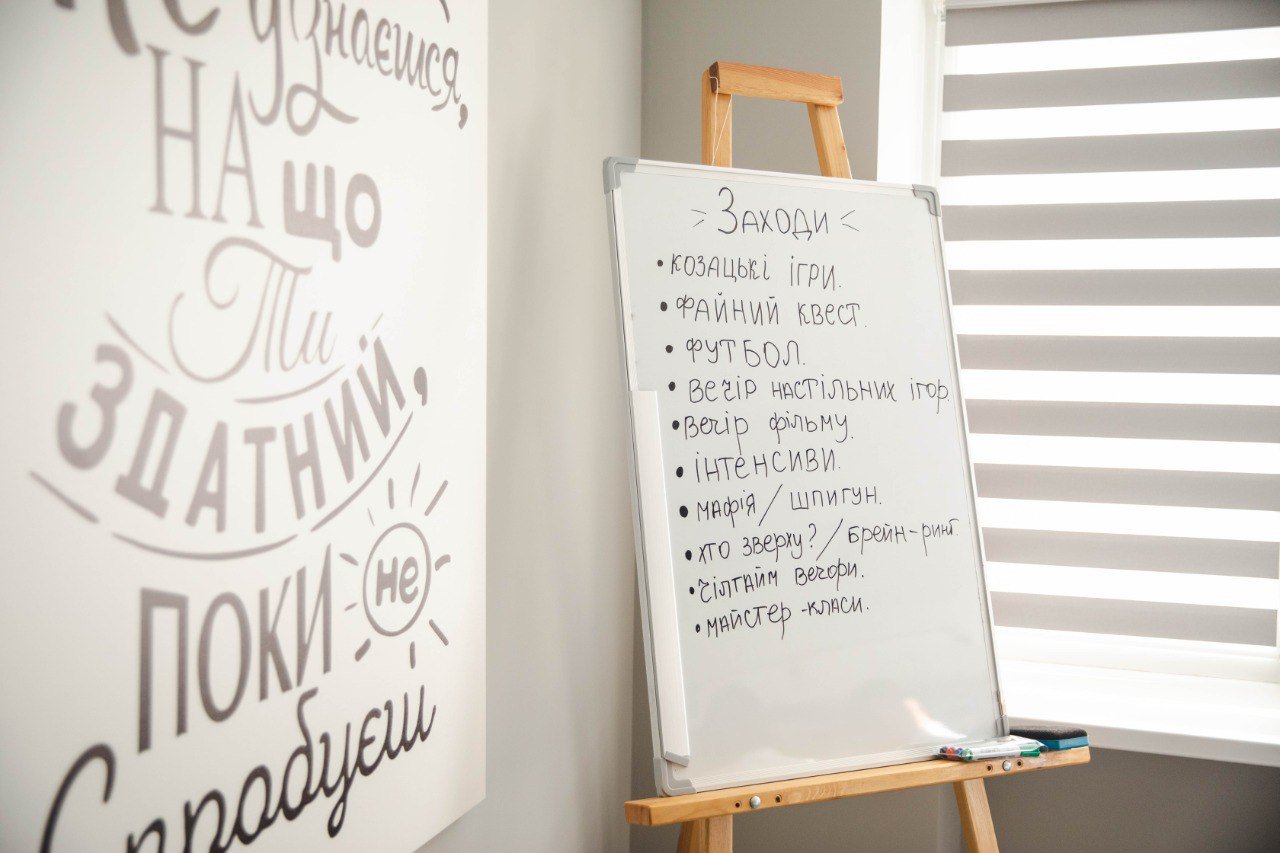 дізнаєшся,
НА ЩО
Ти
ЗДАТНИЙ,
ПОКИ не
Спробуєш
> Заходи <
• козацькі ігри.
• файний квест.
• футбол.
• вечір настільних ігор.
• вечір фільму.
• інтенсиви.
• мафія / шпигун.
• хто зверху? / брейн-ринг.
• чілтайм вечори.
• майстер-класи.